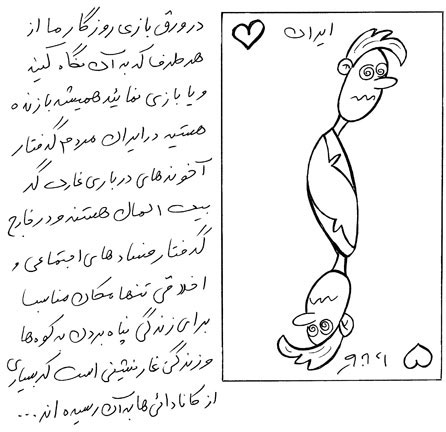 در ورق بازی روزگار ما از
هر طرف که به آن نگاه کنید
و یا بازی نمائید همیشه بازنده
هستید در ایران مردم گرفتار
آخوندهای درباری غارت گر
بیت المال هستند و در خارج
گرفتار فسادهای اجتماعی و
اخلاقی تنها مکان مناسب
برای زندگی پناه بردن به کوه‌ها
و زندگی غار نشینی است که بسیاری
از کانادائی‌ها به آن رسیده اند...
ایران